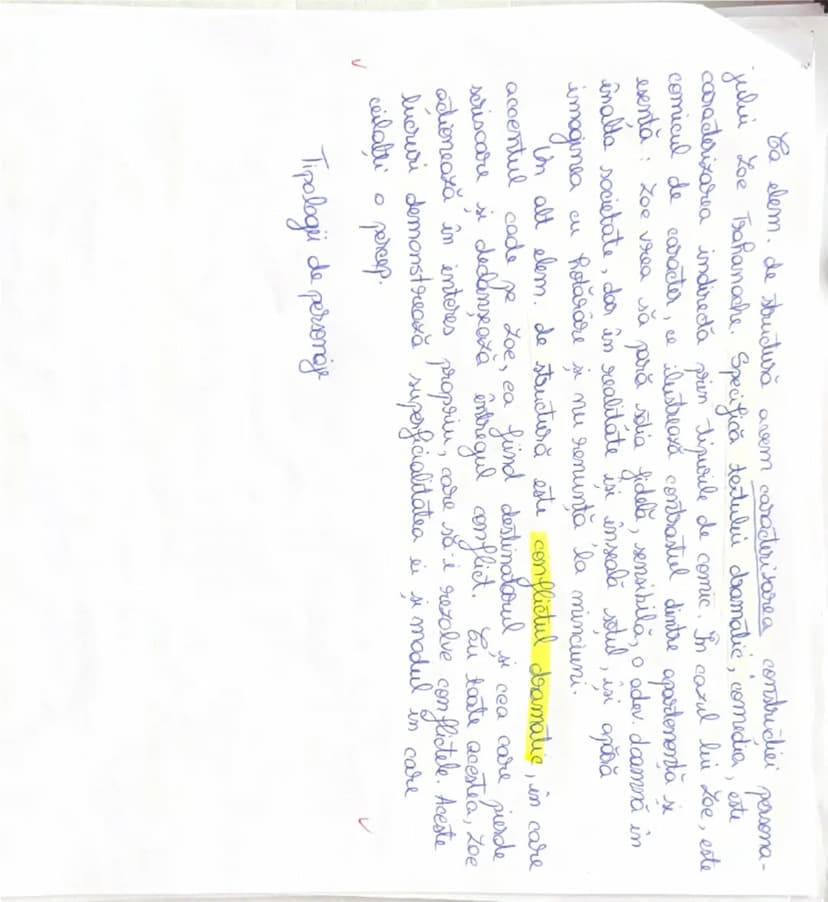 Ca elem. de structură avem caracterizarea construcției persona-
jului Zoe Trahanache. Specifică textului dramatic, comedia, este
caracterizarea indirectă prin tipurile de comic. În cazul lui Zoe, este
comicul de caracter, ce ilustrează contrastul dintre apartenență și
esență: Zoe vrea să pară soția fidelă, sensibilă, o adev. doamnă în
înalta societate, dar în realitate își înșeală soțul, își apără
imaginea cu hotărâre și nu renunță la minciuni.
Un alt elem. de structură este conflictul dramatic, în care
accentul cade pe Zoe, ea fiind destinatarul și cea care pierde
scrisoare și declanșează întregul conflict. Cu toate acestea, Zoe
acționează în interes propriu, care să-i rezolve conflictele. Aceste
lucruri demonstrează superficialitatea ei și modul în care
ceilalți o percep.
Tipologii de personaje